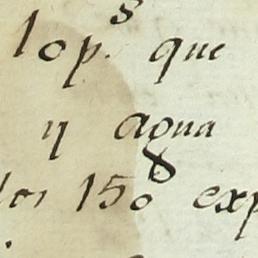 lop.s que
y agua
los 150 exp